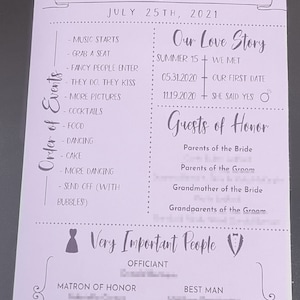 JULY 25TH, 2021
Order of Events
- MUSIC STARTS
- GRAB A SEAT
- FANCY PEOPLE ENTER
- THEY DO, THEY KISS
- MORE PICTURES
- COCKTAILS
- FOOD
- DANCING
- CAKE
- MORE DANCING
- SEND OFF (WITH
BUBBLES!)
Our Love Story
SUMMER 15 WE MET
05.31.2020 OUR FIRST DATE
11.19.2020 SHE SAID YES
Guests of Honor
Parents of the Bride
Parents of the Groom
Grandmother of the Bride
Grandparents of the Groom
Very Important People
OFFICIANT
MATRON OF HONOR
BEST MAN